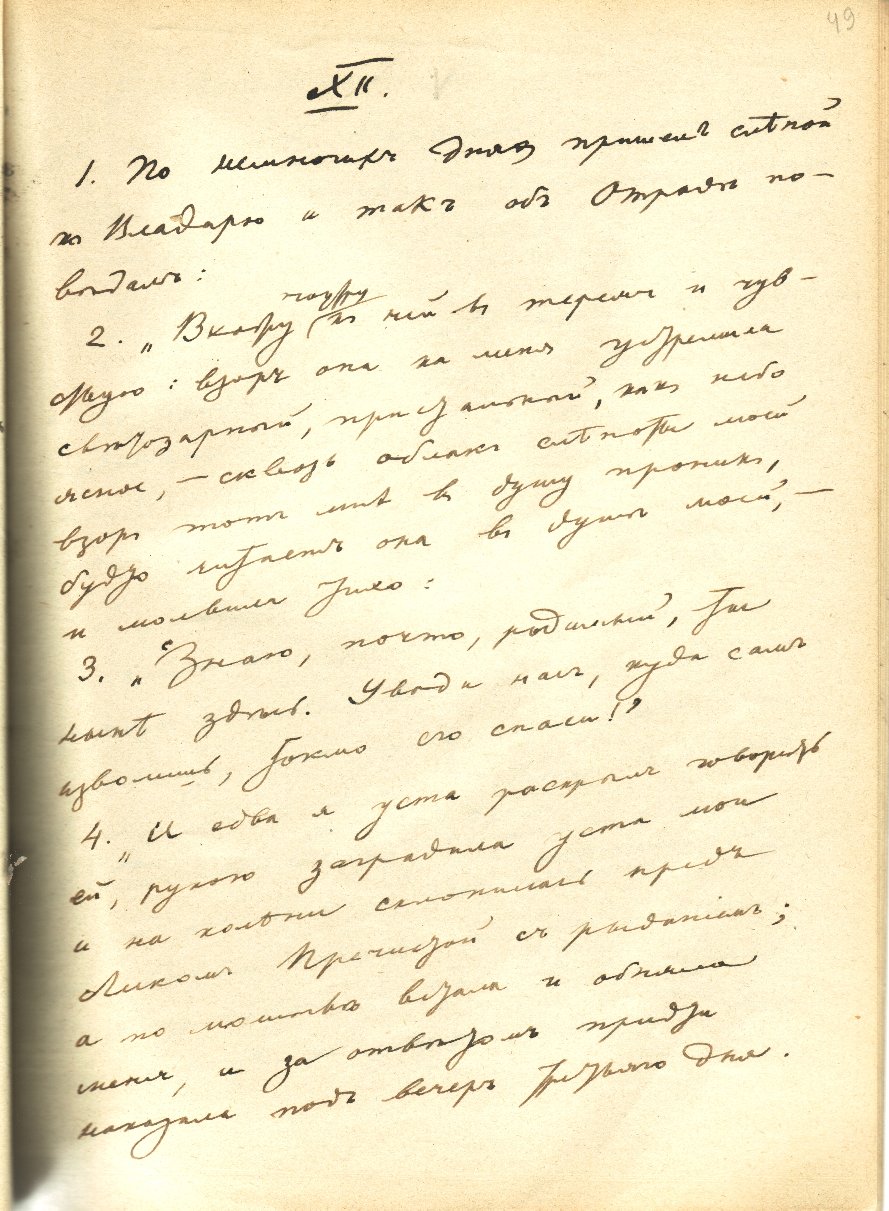 49
XII.
1. По немногихъ дняхъ пришелъ слѣпой
къ Владарю и такъ объ Отрадѣ по-
вѣдалъ:
поутру
2. „ къ ней въ теремъ и чув-
ствую: взоръ она на меня устремила
свѣтозарный, пристальный, какъ небо
ясное, – сквозь облакъ слѣпоты моей
взоръ тотъ мнѣ въ душу проникъ,
будто читаетъ она въ душѣ моей, –
и молвила тихо:
3. „Знаю, почто, родимый, ты
нынѣ здѣсь. Уводи насъ, куда самъ
изволишь, токмо его спаси!"
4. „И едва я уста раскрылъ говорить
ей, рукою заградила уста мои
и на колѣни склонилась предъ
Ликомъ Пречистой съ рыданіемъ;
а по молитвѣ встала и обняла
меня, и за отвѣтомъ придти
наказала подъ вечеръ третьяго дня.